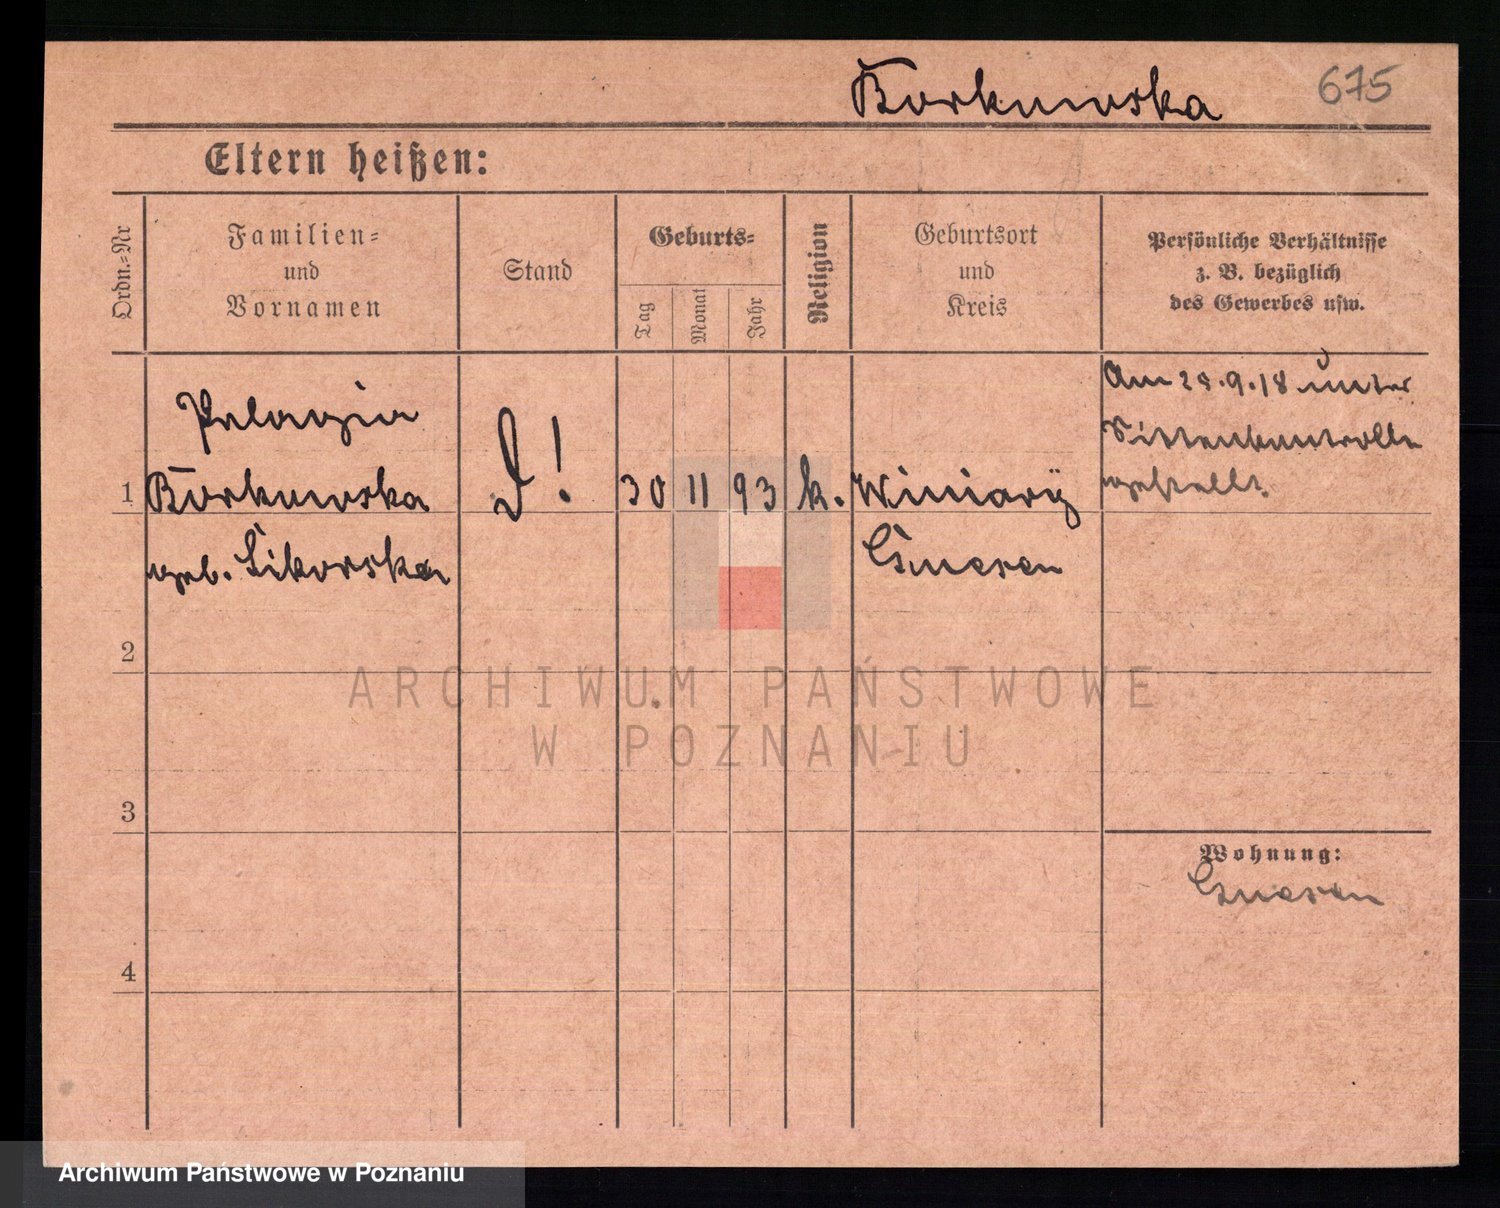 Borkowska 675
Eltern heißen:
Ordn.-Nr
Familien-
und
Vornamen
Stand
Geburts-
Tag
Monat
Jahr
Religion
Geburtsort
und
Kreis
Persönliche Verhältnisse
z. B. bezüglich
des Gewerbes usw.
Am 28.9.18 unter
Sittenkontrolle
gestellt.
Pelagia
1 Borkowska
geb. Sikorska
30 11 93 k. Winiary
Gnesen
2
3
4
Wohnung:
Gnesen
ARCHIWUM PAŃSTWOWE
W POZNANIU
Archiwum Państwowe w Poznaniu